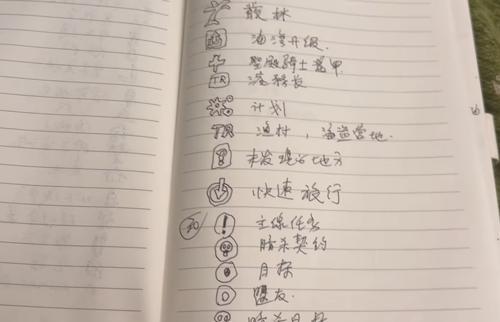 散林
海湾升级.
圣殿骑士盔甲
TR 港务长
计划
TR 渔村，海盗营地.
未发现的地方
快速旅行
主线任务
暗杀契约
目标
盟友.
暗杀目标